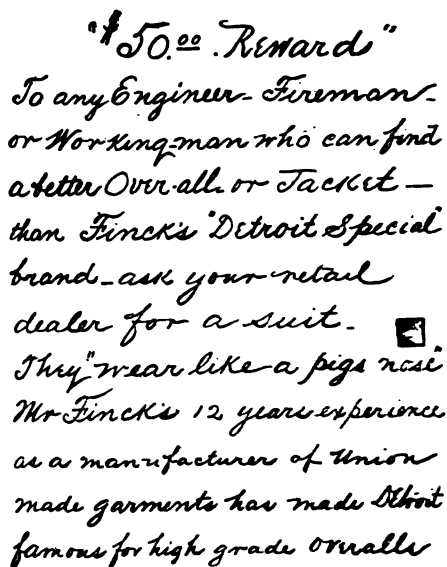 "$50.00. Reward"
To any Engineer - Fireman -
or Working-man who can find
a better Over-all or Jacket —
than Finck's "Detroit Special"
brand - ask your retail
dealer for a suit.
They "wear like a pigs nose"
Mr Finck's 12 years experience
as a manufacturer of Union
made garments has made Detroit
famous for high grade overalls